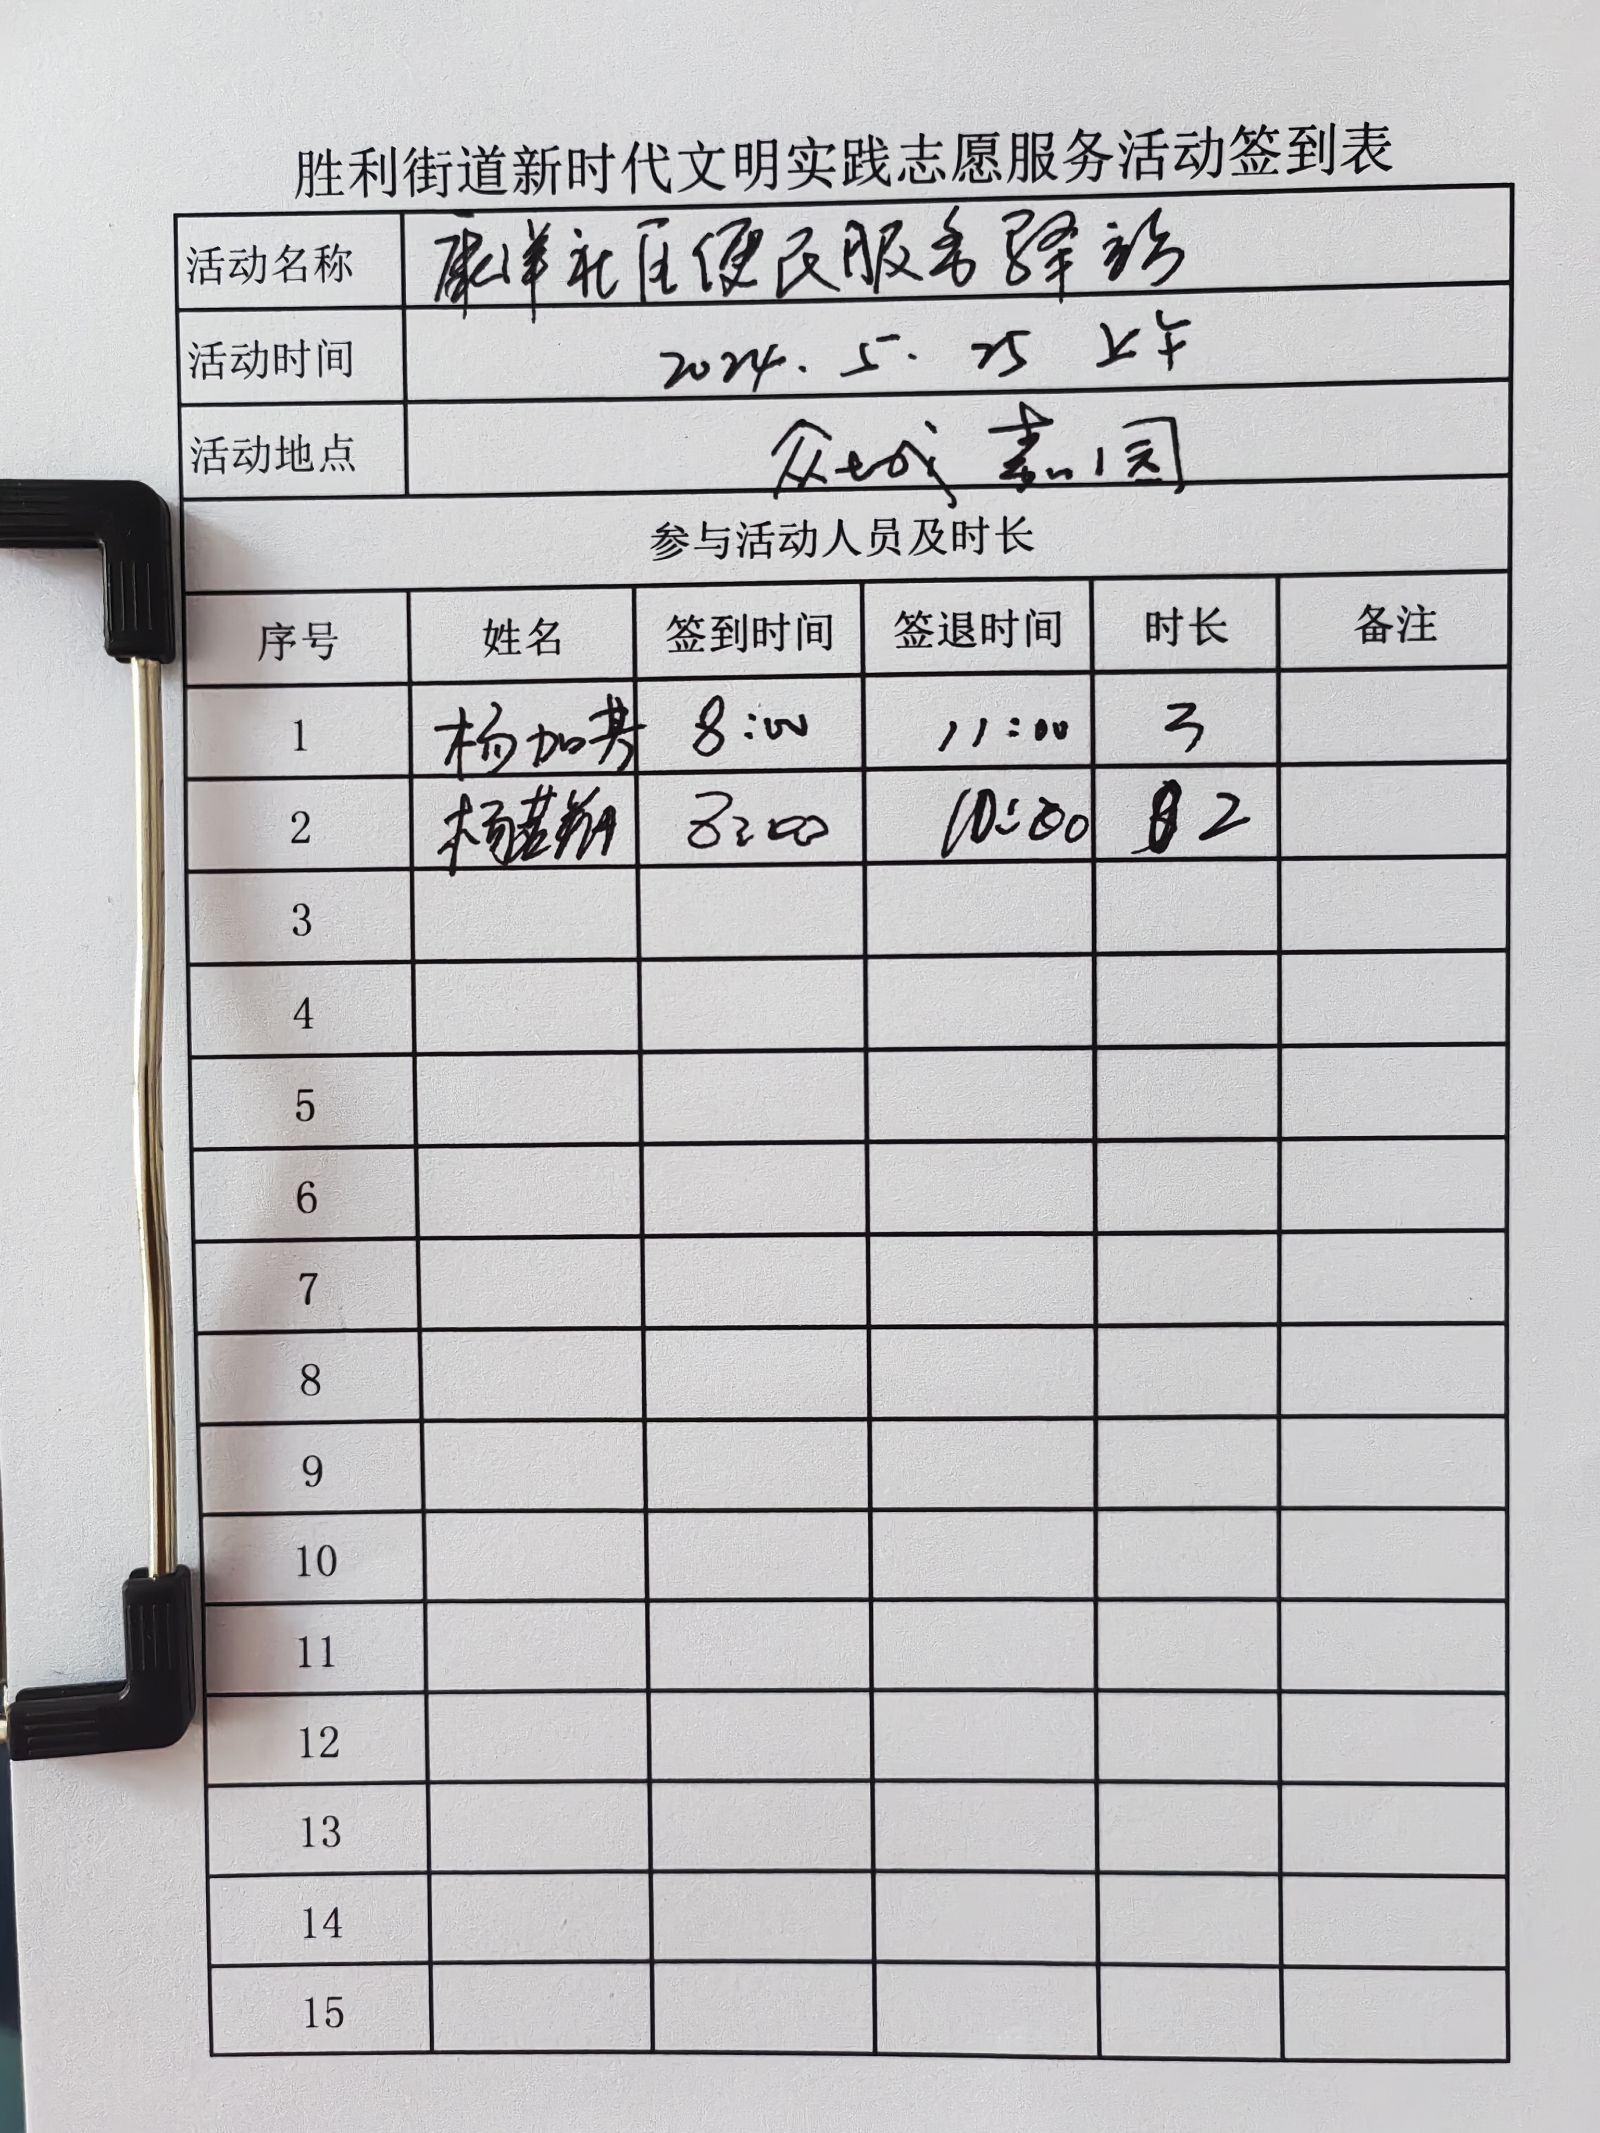 胜利街道新时代文明实践志愿服务活动签到表
活动名称 康洋社区便民服务驿站
活动时间 2024.5.25 上午
活动地点 众城嘉园
参与活动人员及时长
序号 姓名 签到时间 签退时间 时长 备注
1 杨加其 8:00 11:00 3
2 杨 8:00 10:00 2
3
4
5
6
7
8
9
10
11
12
13
14
15